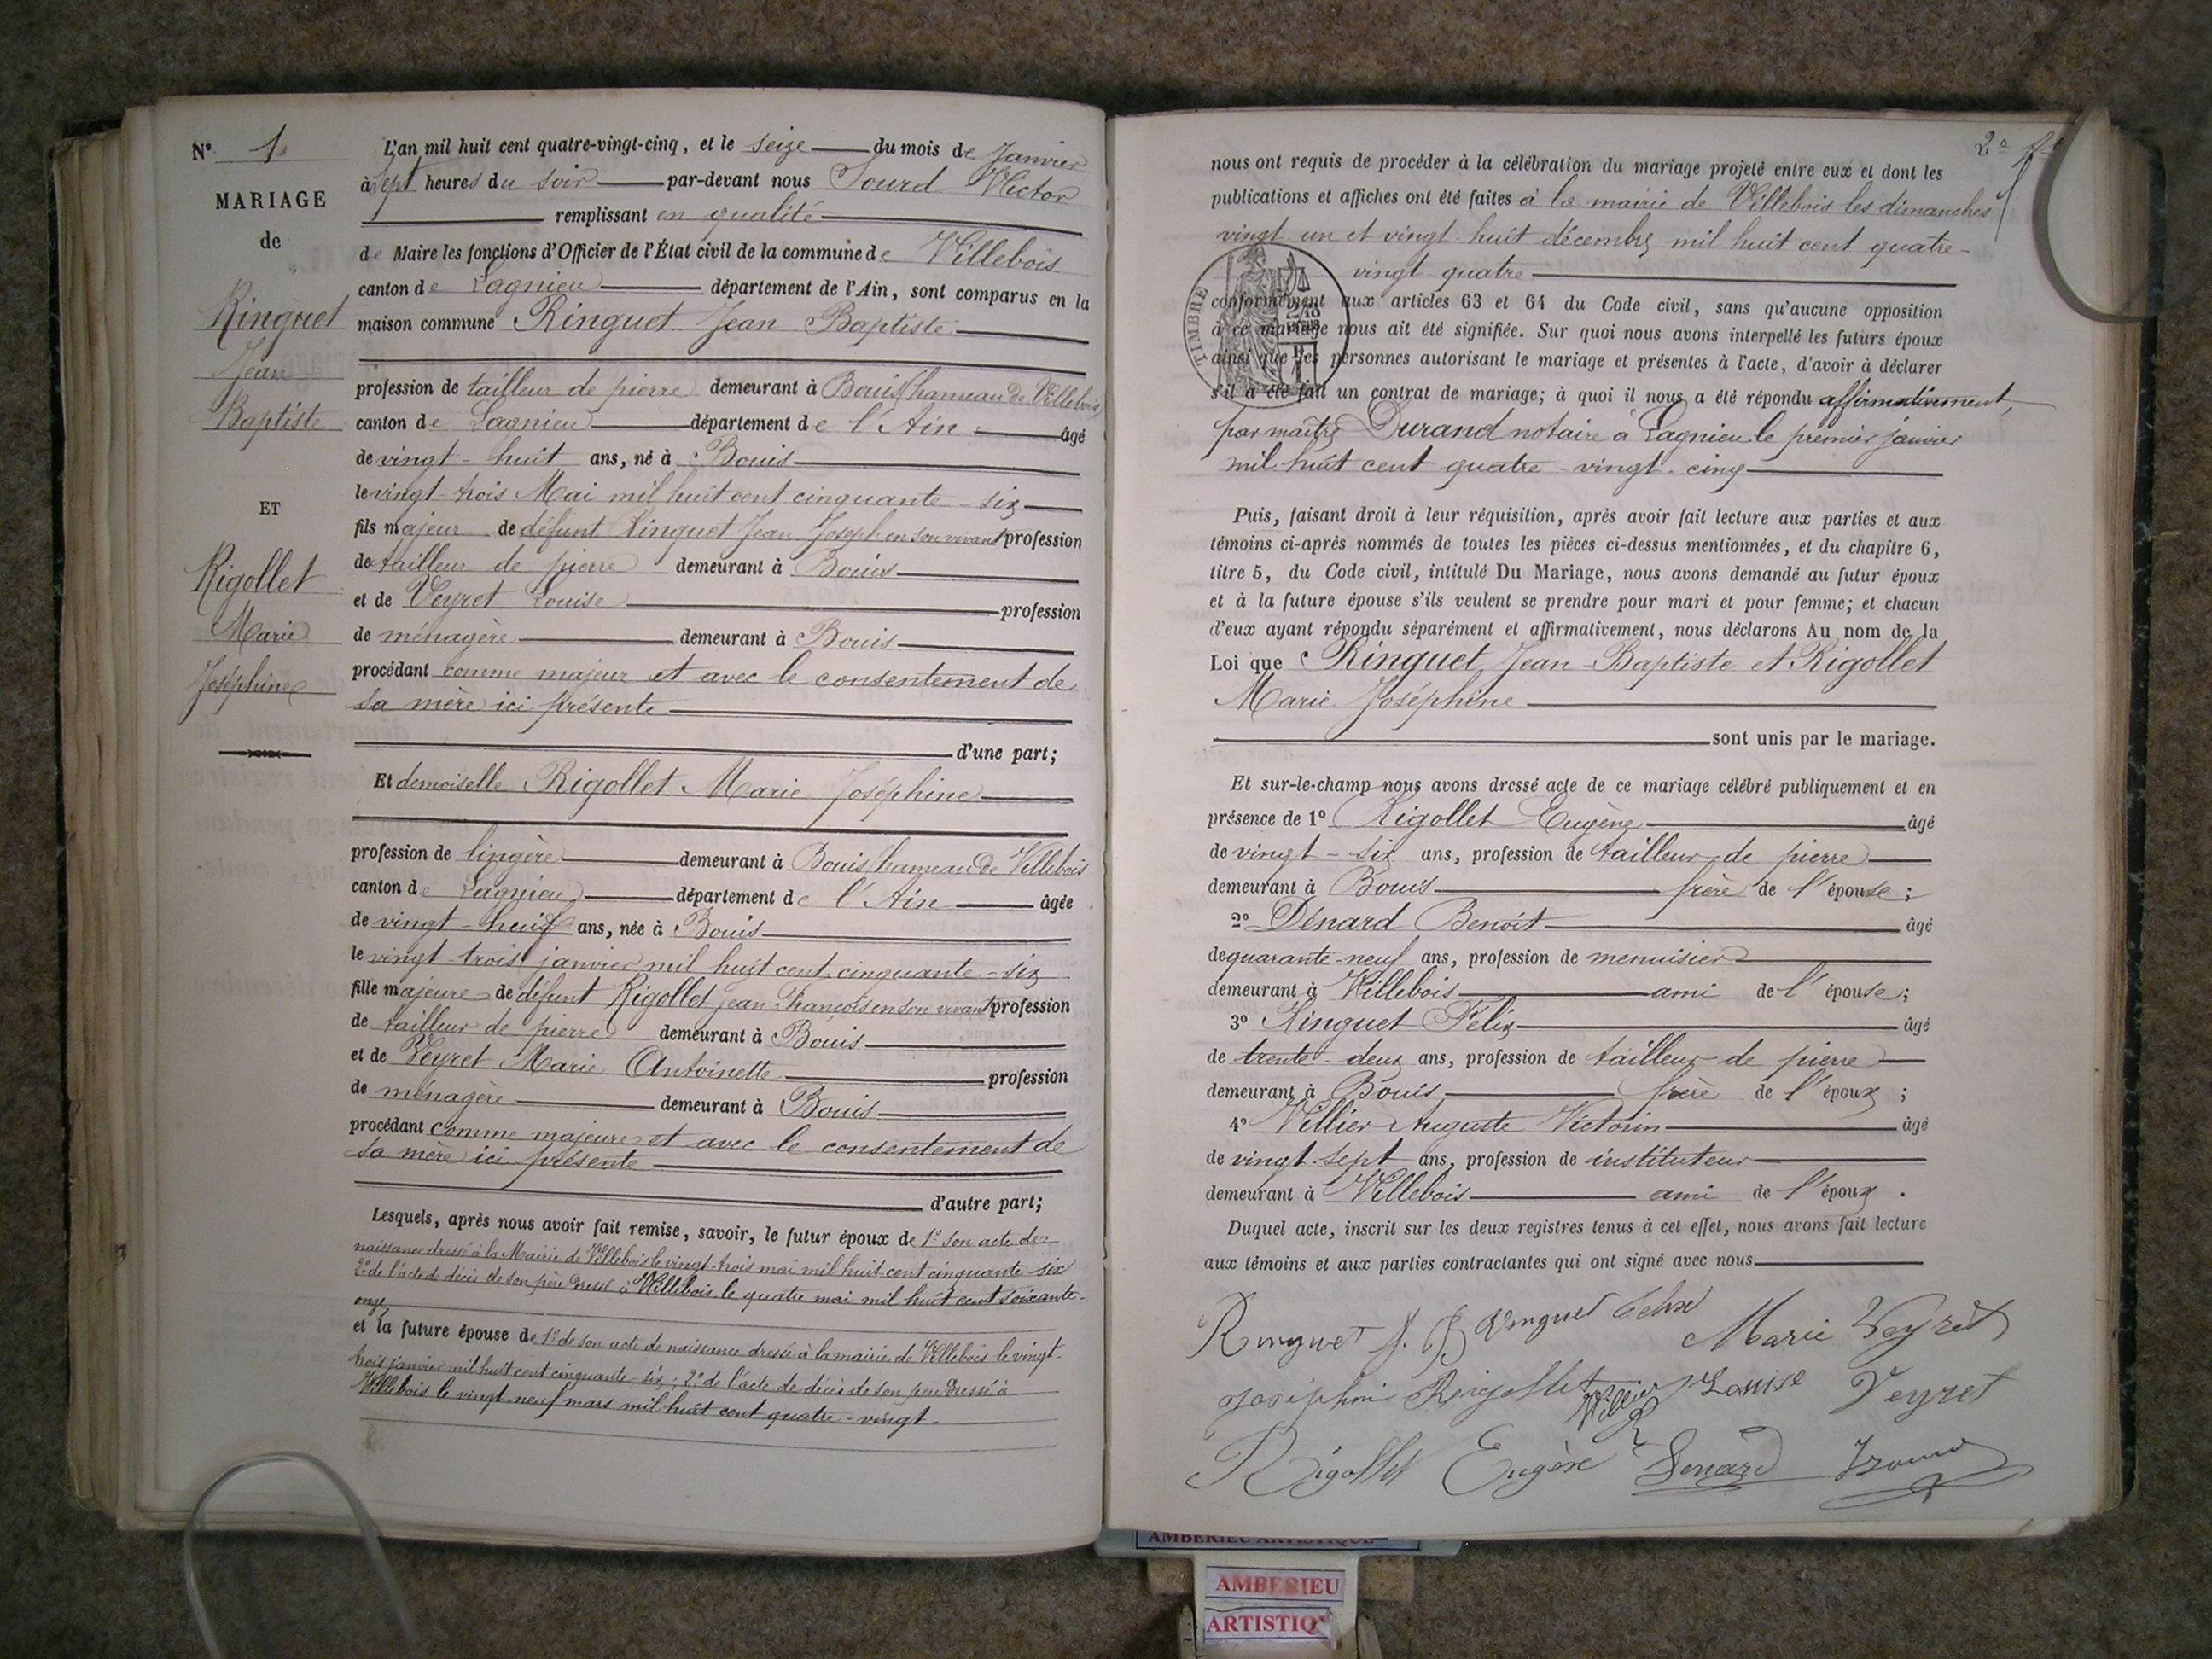 N° 1
MARIAGE
de
Ringuet
Jean
Baptiste
ET
Rigollet
Marie
Joséphine
L'an mil huit cent quatre-vingt-cinq, et le seize du mois de Janvier
à sept heures du soir par-devant nous Sourd Victor
remplissant en qualité
de Maire les fonctions d'Officier de l'État civil de la commune de Villebois
canton de Lagnieu département de l'Ain, sont comparus en la
maison commune Ringuet Jean Baptiste
profession de tailleur de pierre demeurant à Bouis hameau de Villebois
canton de Lagnieu département de l'Ain âgé
de vingt-huit ans, né à Bouis
le vingt-trois Mai mil huit cent cinquante-six
fils majeur de défunt Ringuet Jean Joseph en son vivant profession
de tailleur de pierre demeurant à Bouis
et de Veyret Louise profession
de ménagère demeurant à Bouis
procédant comme majeur et avec le consentement de
sa mère ici présente
d'une part;
Et demoiselle Rigollet Marie Joséphine
profession de lingère demeurant à Bouis hameau de Villebois
canton de Lagnieu département de l'Ain âgée
de vingt-huit ans, née à Bouis
le vingt-trois janvier mil huit cent cinquante-six
fille majeure de défunt Rigollet Jean-François en son vivant profession
de tailleur de pierre demeurant à Bouis
et de Veyret Marie Antoinette profession
de ménagère demeurant à Bouis
procédant comme majeure et avec le consentement de
sa mère ici présente
d'autre part;
Lesquels, après nous avoir fait remise, savoir, le futur époux de 1° son acte de
naissance dressé à la Mairie de Villebois le vingt-trois mai mil huit cent cinquante six
2° de l'acte de décès de son père dressé à Villebois le quatre mai mil huit cent soixante-
onze
et la future épouse de 1° de son acte de naissance dressé à la mairie de Villebois le vingt-
trois janvier mil huit cent cinquante-six; 2° de l'acte de décès de son père dressé à
Villebois le vingt-neuf mars mil huit cent quatre-vingt.
nous ont requis de procéder à la célébration du mariage projeté entre eux et dont les
publications et affiches ont été faites à la mairie de Villebois les dimanches
vingt un et vingt-huit décembre mil huit cent quatre-
vingt quatre
TIMBRE
conformément aux articles 63 et 64 du Code civil, sans qu'aucune opposition
à ce mariage nous ait été signifiée. Sur quoi nous avons interpellé les futurs époux
ainsi que les personnes autorisant le mariage et présentes à l'acte, d'avoir à déclarer
s'il a été fait un contrat de mariage; à quoi il nous a été répondu affirmativement,
par maître Durand notaire à Lagnieu le premier janvier
mil huit cent quatre-vingt-cinq
Puis, faisant droit à leur réquisition, après avoir fait lecture aux parties et aux
témoins ci-après nommés de toutes les pièces ci-dessus mentionnées, et du chapitre 6,
titre 5, du Code civil, intitulé Du Mariage, nous avons demandé au futur époux
et à la future épouse s'ils veulent se prendre pour mari et pour femme; et chacun
d'eux ayant répondu séparément et affirmativement, nous déclarons Au nom de la
Loi que Ringuet Jean-Baptiste et Rigollet
Marie Joséphine
sont unis par le mariage.
Et sur-le-champ nous avons dressé acte de ce mariage célébré publiquement et en
présence de 1° Rigollet Eugène âgé
de vingt-six ans, profession de tailleur de pierre
demeurant à Bouis frère de l'épouse;
2° Dénard Benoit âgé
de quarante-neuf ans, profession de menuisier
demeurant à Villebois ami de l'épouse;
3° Ringuet Félix âgé
de trente-deux ans, profession de tailleur de pierre
demeurant à Bouis frère de l'époux;
4° Villier Auguste Victorin âgé
de vingt-sept ans, profession de instituteur
demeurant à Villebois ami de l'époux.
Duquel acte, inscrit sur les deux registres tenus à cet effet, nous avons fait lecture
aux témoins et aux parties contractantes qui ont signé avec nous
Ringuet J. B Ringuet Felix Marie Veyret
Joséphine Rigollet Villier Louise Veyret
Rigollet Eugène Denard
AMBERIEU ARTISTIQUE
AMBERIEU
ARTISTIQ